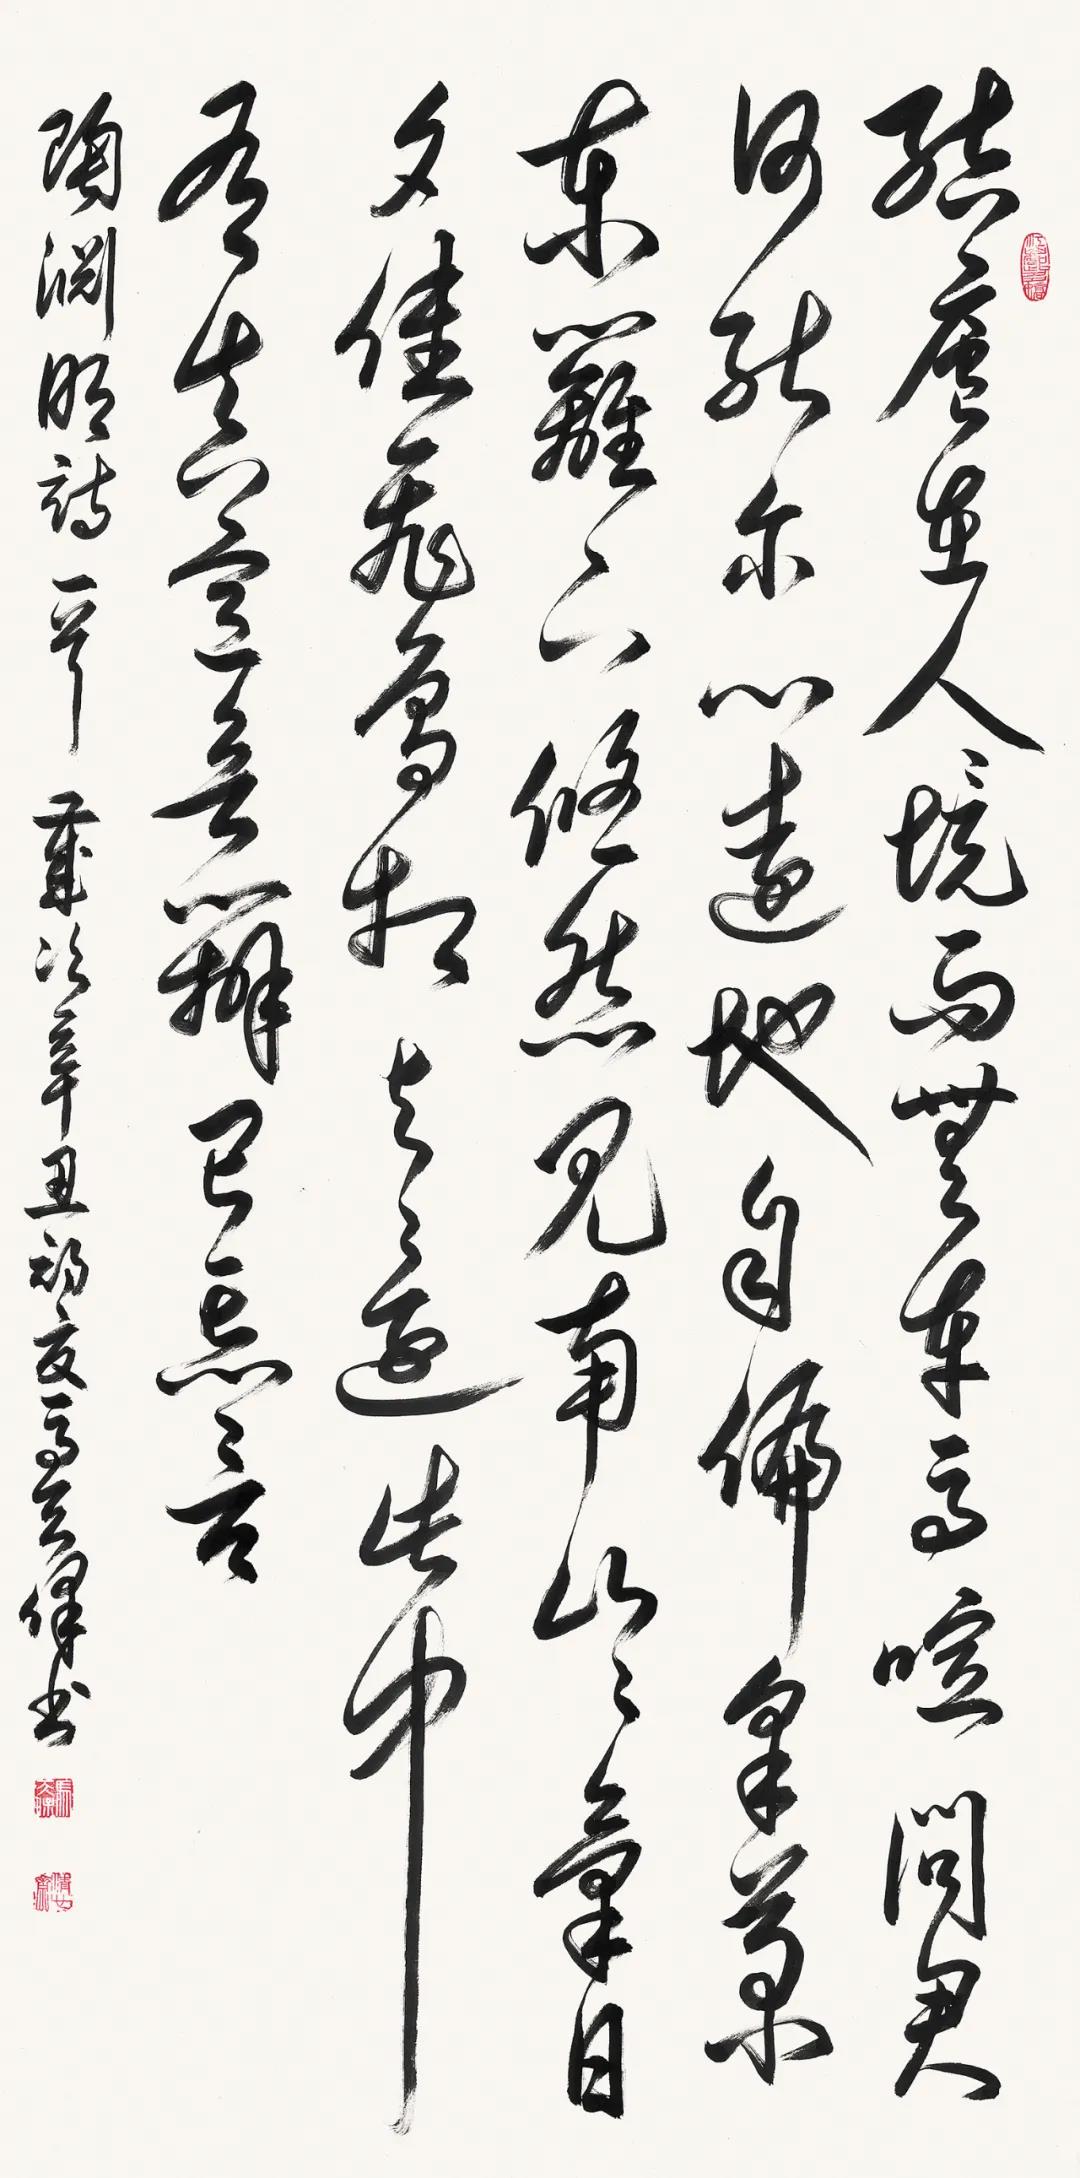 結廬在人境而無車馬喧問君
何能尔心遠地自偏采菊
東籬下悠然見南山〻氣日
夕佳飛鳥相与還此中
有真意欲辯已忘言
陶淵明詩一首 歲次辛丑初夏馬书